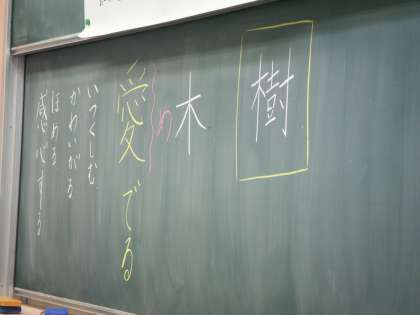 樹
木
め
愛でる
いつくしむ
かわいがる
ほめる
感心する